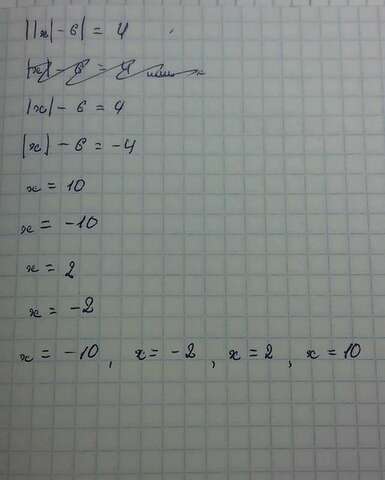 ||x| - 6| = 4
|x| - 6 = 4 или x
|x| - 6 = 4
|x| - 6 = -4
x = 10
x = -10
x = 2
x = -2
x = -10, x = -2, x = 2, x = 10